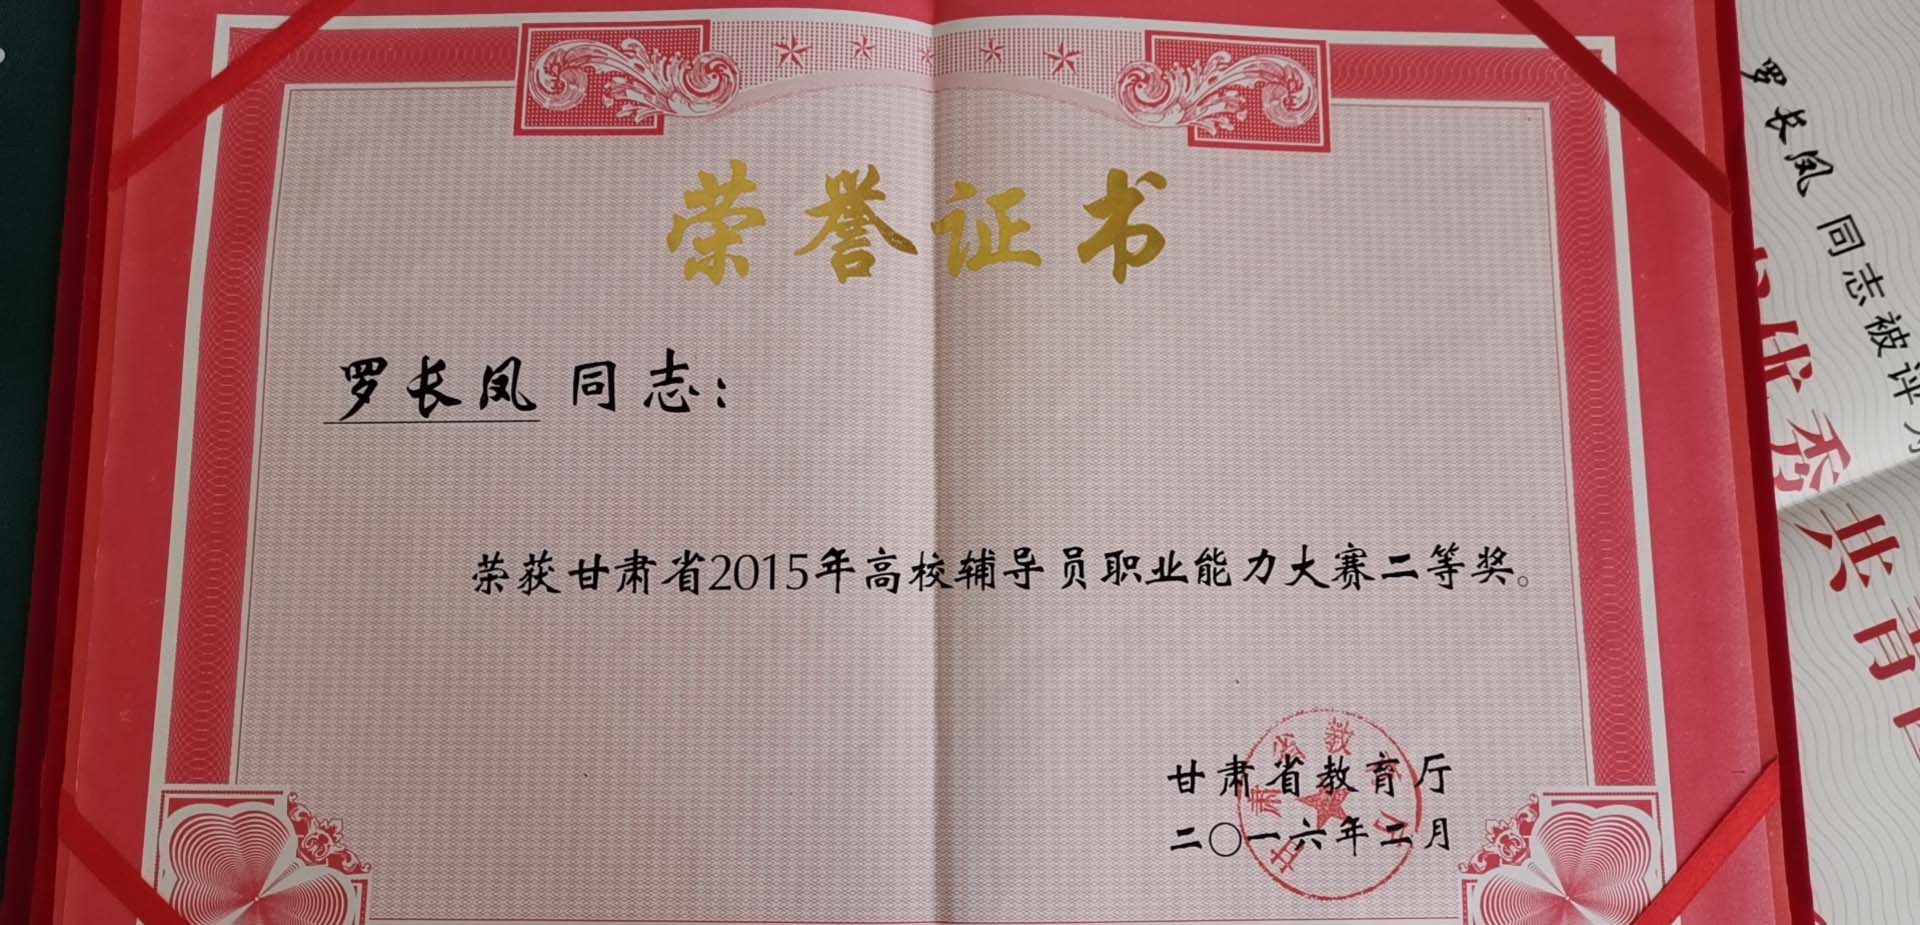 荣誉证书
罗长凤 同志：
荣获甘肃省2015年高校辅导员职业能力大赛二等奖。
甘肃省教育厅
二〇一六年二月
甘肃省教育厅
罗长凤 同志被评为
优秀
共青团